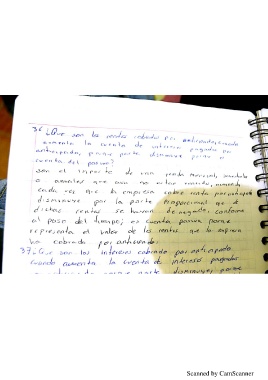 36. ¿Que son las rentas cobradas por anticipado, cuando
aumenta la cuenta de intereses pagados por
anticipado, porque parte disminuye parte o
cuenta del pasivo?
son el importe de una renta mensual,
o anuales que aun no estan vencidas, aumenta
cada vez que la empresa cobre renta por anticipado
disminuye por la parte proporcional que de
dichas rentas se hayan devengado, conforme
al paso del tiempo; es cuenta pasiva porque
representa el valor de las rentas que la empresa
ha cobrado por anticipado.
37. ¿Que son los intereses cobrados por anticipado,
cuando aumenta la cuenta de intereses pagados
porque parte disminuye, parte
Scanned by CamScanner